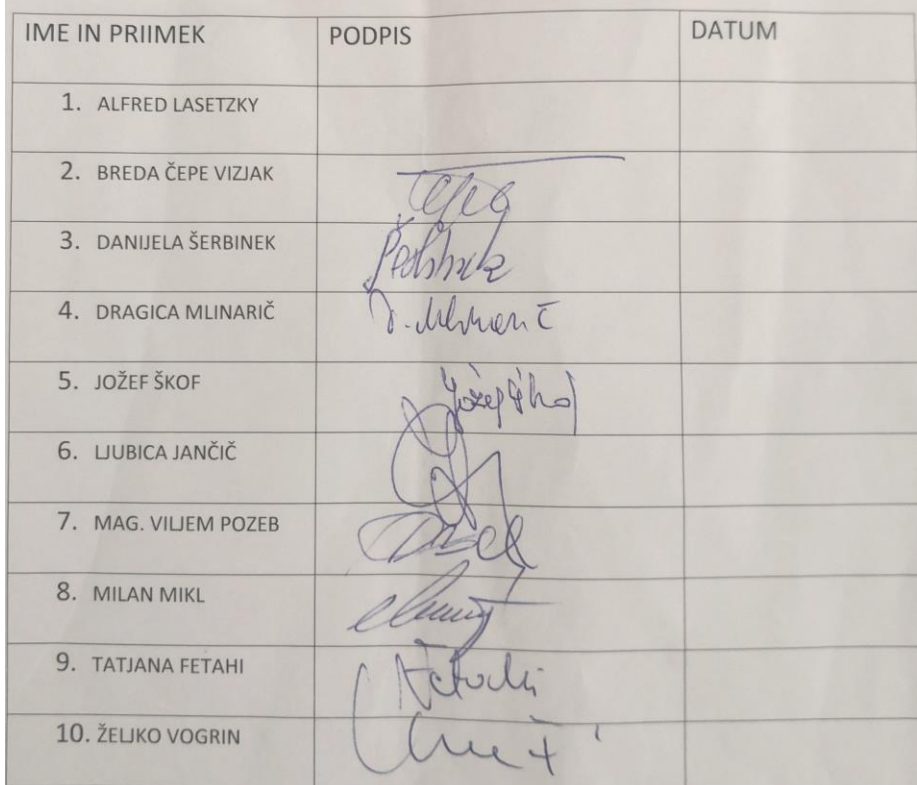 IME IN PRIIMEK PODPIS DATUM
1. ALFRED LASETZKY
2. BREDA ČEPE VIZJAK
3. DANIJELA ŠERBINEK
4. DRAGICA MLINARIČ D. Mlinarič
5. JOŽEF ŠKOF Jožef Škof
6. LJUBICA JANČIČ
7. MAG. VILJEM POZEB
8. MILAN MIKL
9. TATJANA FETAHI
10. ŽELJKO VOGRIN